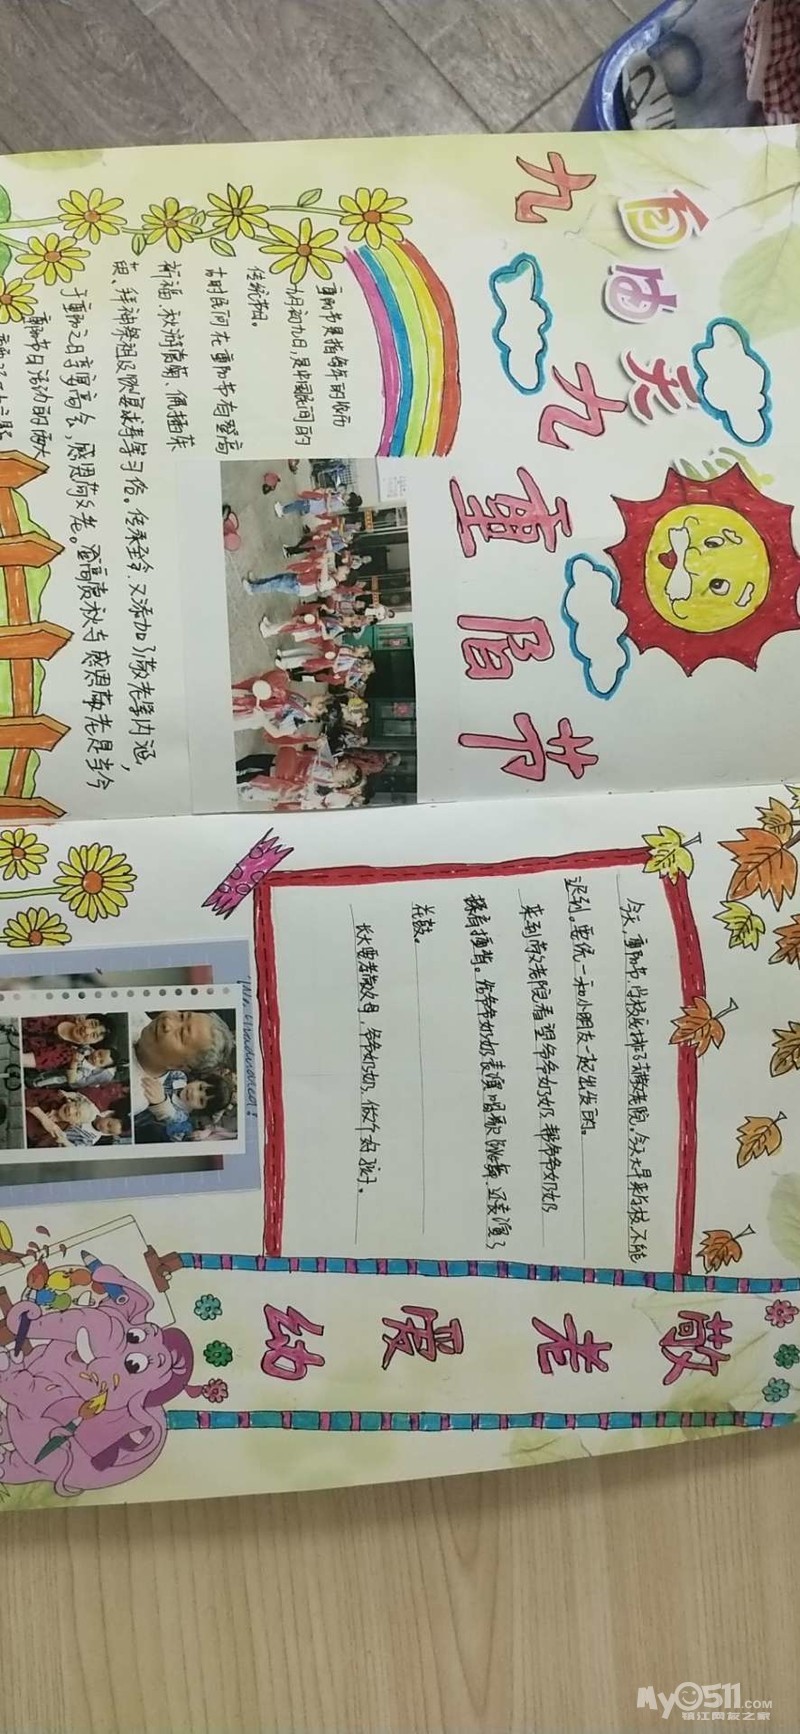 自由天
九九重阳节
重阳节是指每年的农历
九月初九日,是中国民间的
传统节日。
古时民间在重阳节有登高
祈福、秋游赏菊、佩插茱
萸、拜神祭祖及饮宴求寿等习俗。传承至今,又添加了敬老等内涵,
于重阳之日享宴高会,感恩敬老。登高赏秋与感恩敬老是当今
重阳节日活动的两大
今天,重阳节,学校安排了去敬老院。今天大早来学校,不能
迟到。要统一和小朋友一起出发的。
来到敬老院看望爷爷奶奶,帮爷爷奶奶
揉肩捶背。给爷爷奶奶表演唱歌、跳舞,还表演了
花鼓。
长大要孝敬父母,爷爷奶奶,做个好孩子。
敬老爱幼
My0511.COM
镇江网友之家